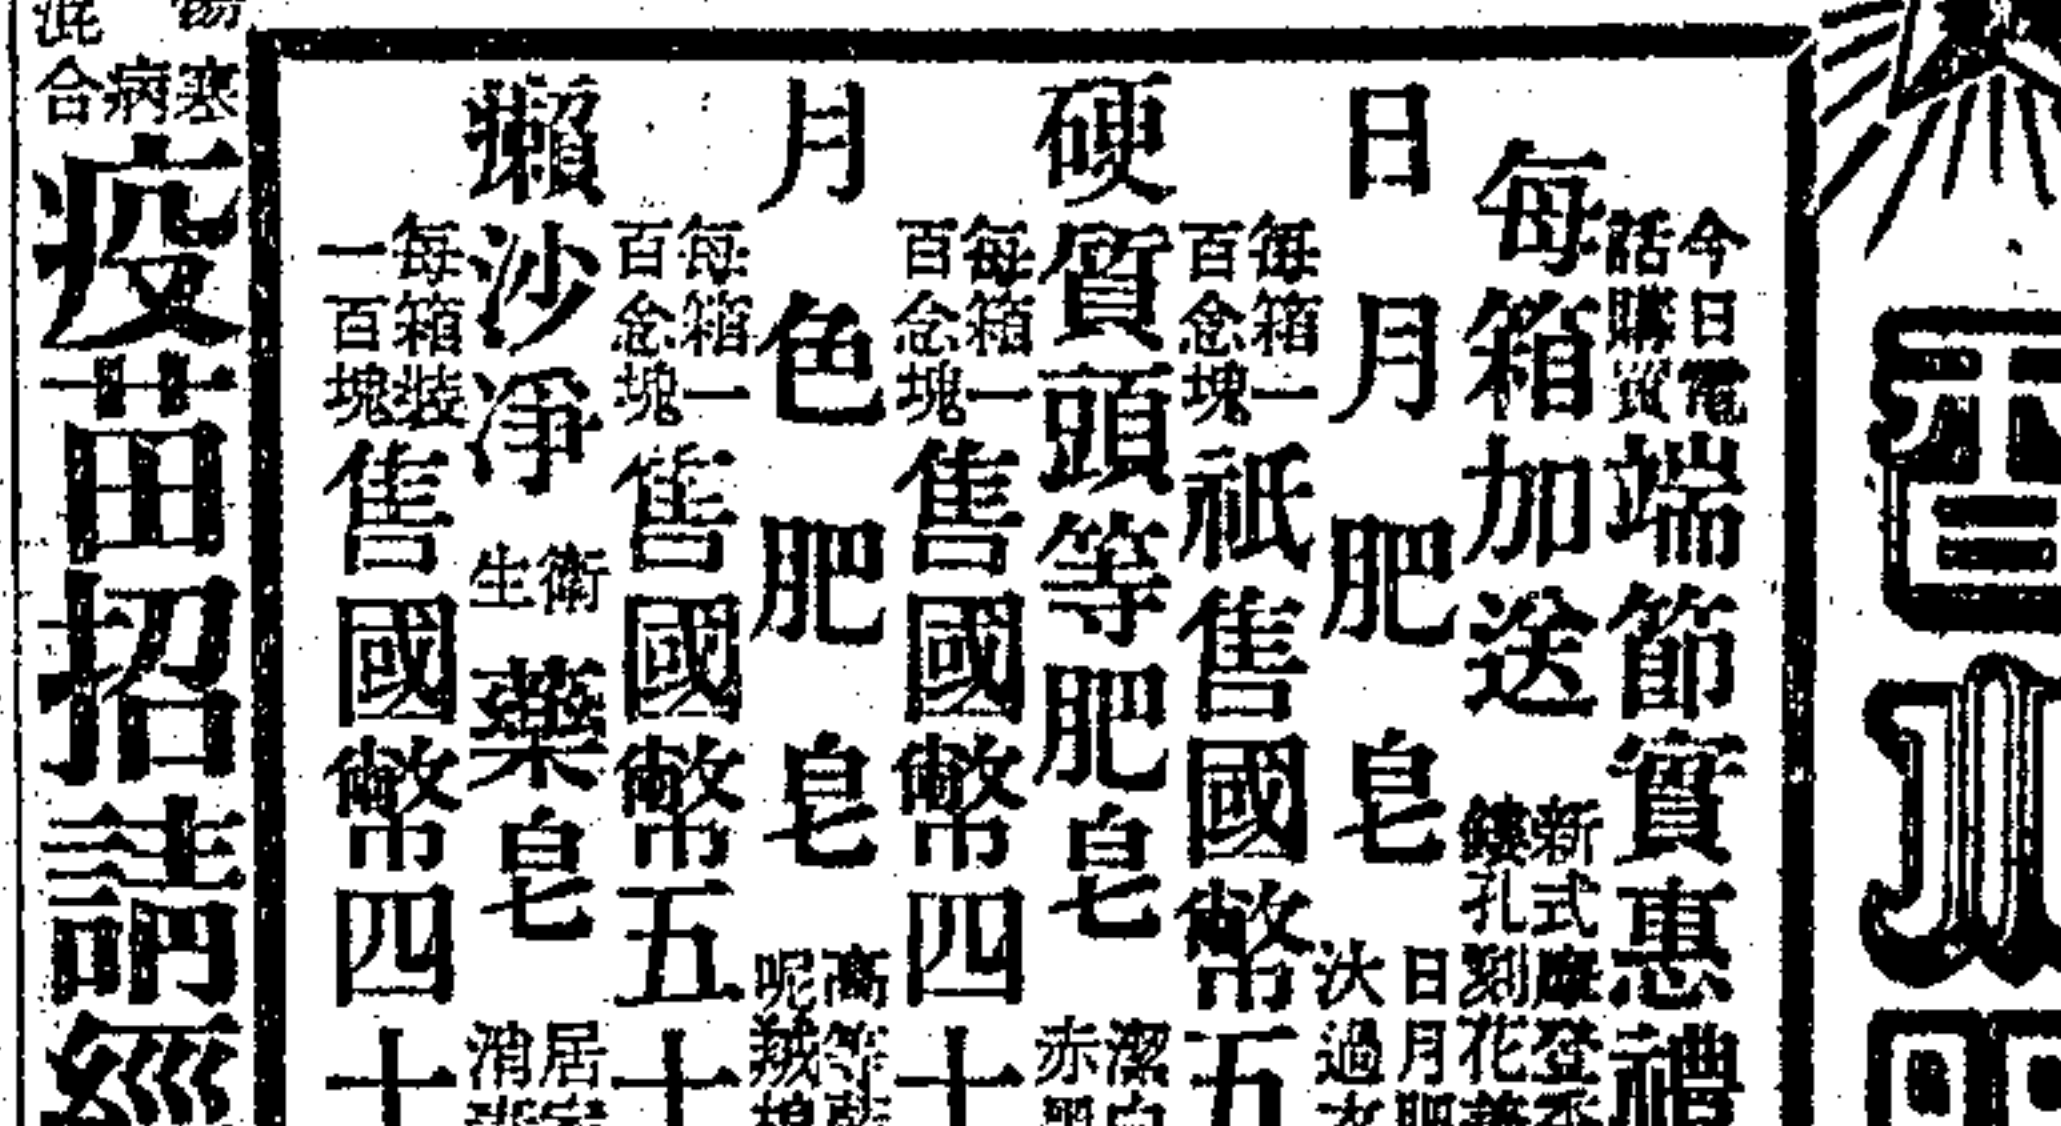 今日電話購買端節實惠禮
每箱加送新式摩登鏤孔刻花
日月肥皂日月肥
每箱一百念塊祇售國幣五
硬質頭等肥皂潔白赤
每箱一百念塊售國幣四十
月色肥皂高等呢羢
每箱一百念塊售國幣五十
獺沙淨衛生藥皂居消
每箱裝一百塊售國幣四十
傷寒病混合疫苗招請經